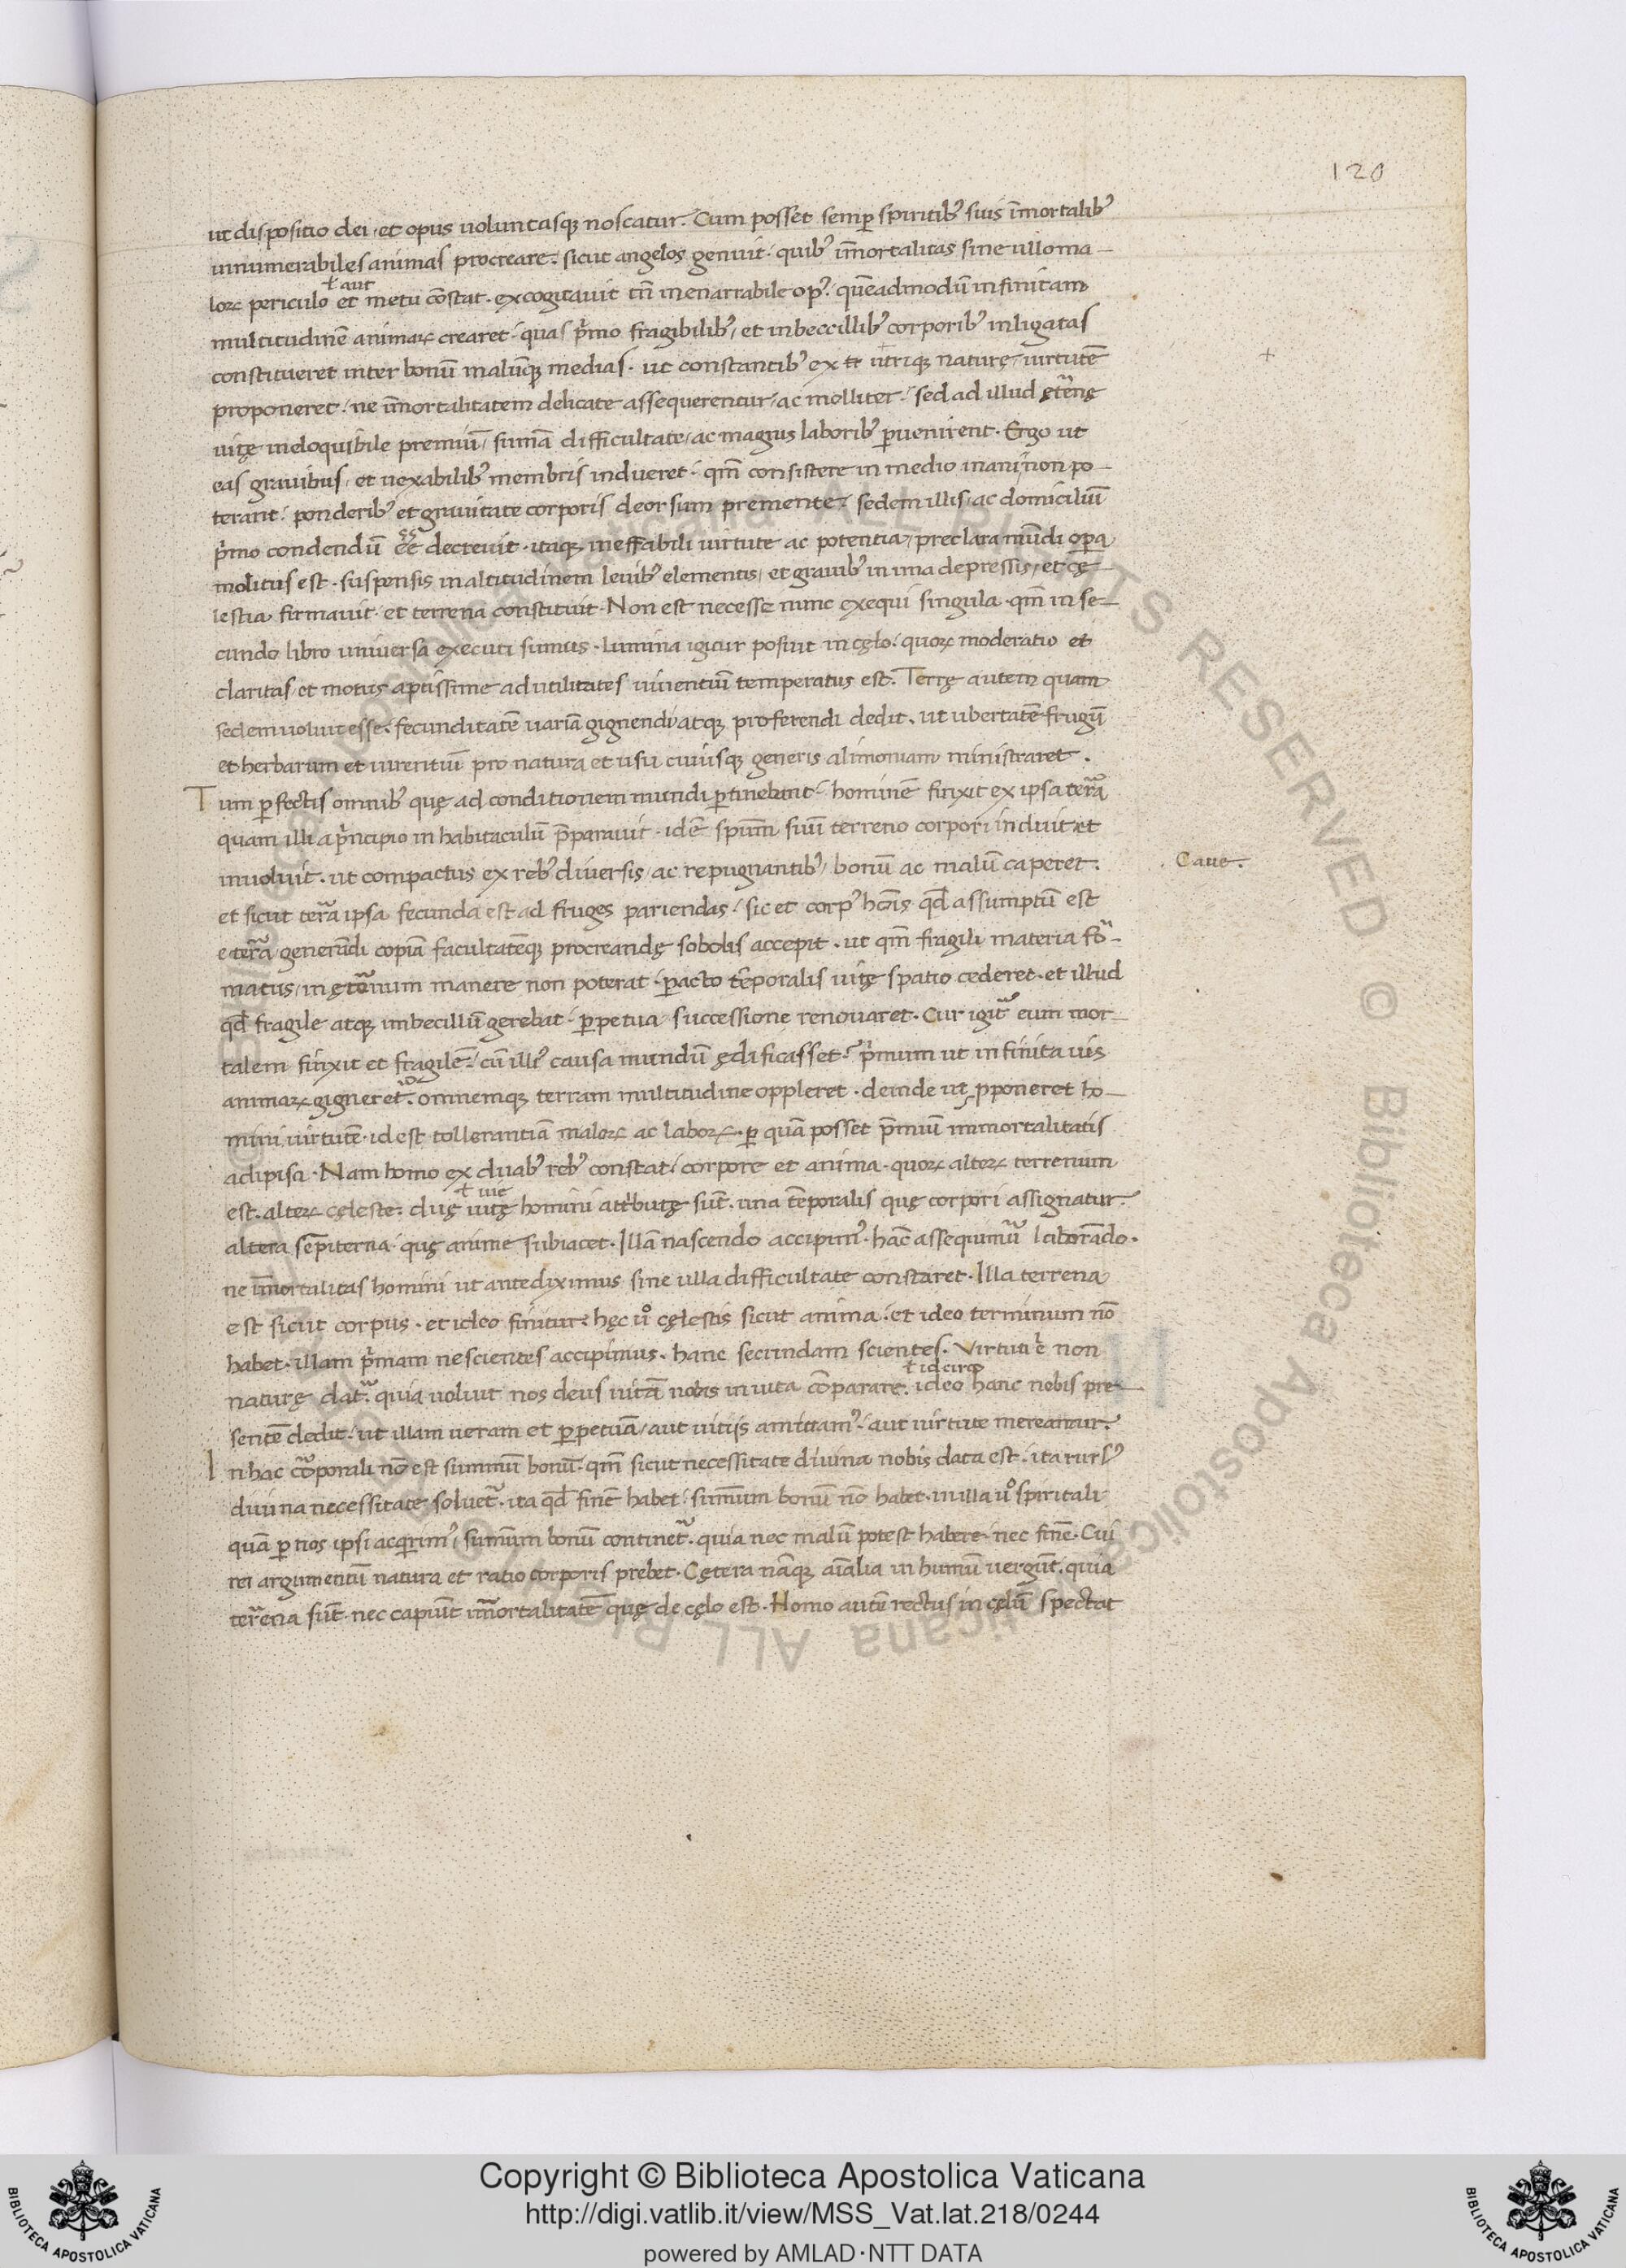 120
ut dispositio dei, et opus uoluntasq; noscatur. Cum posset semp̱ spiritib; suis īmortalib;
innumerabiles animas procreare. sicut angelos genuit. quib; īmortalitas sine ullo ma-
ł aut
loꝝ periculo et metu cōstat. excogitauit tn̄ inenarrabile op;. quēadmodū infinitam
multitudinē animaꝝ crearet. quas p̄mo fragibilib;, et inbeccillib; corporib; inligatas
constitueret inter bonū malūq; medias. ut constantib; ex utrisq; naturę uirtutē
proponeret. ne īmortalitatem delicate assequerentur, ac molliter. sed ad illud ęt̄nę
uitę ineloquibile premiū, sūma difficultate, ac magnis laborib; ꝑuenirent. Ergo ut
eas grauibus, et uexabilib; membris indueret. qm̄ consistere in medio inani non po-
terant. ponderib; et grauitate corporis deorsum premente. sedem illis, ac domiciliū
p̄mo condendū eē decreuit. itaq; ineffabili uirtute ac potentia, preclara mūdi opera
molitus est. suspensis in altitudinem leuib; elementis, et grauib; in ima depressis, et cę-
lestia firmauit. et terrena constituit. Non est necesse nunc exequi singula. qm̄ in se-
cundo libro uniuersa executi sumus. Lumina igitur posuit in cęlo. quoꝝ moderatio et
claritas, et motus aptissime ad utilitates uiuentiū temperatus est. Terrę autem quam
sedem uoluit esse. fecunditatē uariā gignendi atq; proferendi dedit. ut ubertatē frugū
et herbarum et uirentiū pro natura et usu cuiusq; generis alimoniam ministraret.
Tum ꝑfectis omnib; quę ad conditionem mundi ꝑtinebant. hominē finxit ex ipsa tera
quam illi a p̄ncipio in habitaculū p̄parauit. idē spiritū suū terreno corpori induit et
inuoluit. ut compactus ex reb; diuersis, ac repugnantib;, bonū ac malū caperet.
Caue.
et sicut tera ipsa fecunda est ad fruges pariendas. sic et corp; hōis qđ assumptū est
e tera generādi copiā facultatēq; procreandę sobolis accepit. ut qm̄ fragili materia for-
matus, in ęternum manere non poterat. ꝑacto tēporalis uitę spatio cederet. et illud
qđ fragile atq; imbecillū gerebat. ꝑpetua successione renouaret. Cur igit̄ eum mor-
talem finxit et fragilē. cū illi; causa mundū ędificasset? p̄mum ut infinita uis
animaꝝ gigneret. omnemq; terram multitudine oppleret. deinde ut ꝓponeret ho-
mini uirtutē. id est tollerantiā maloꝝ ac laboꝝ. ꝑ quā posset p̄miū immortalitatis
adipisci. Nam homo ex duab; reb; constat. corpore et anima. quoꝝ alteꝝ terrenum
ł uię
est. alteꝝ cęleste. duę uitę homini attributę sūt. una tēporalis quę corpori assignatur.
altera sēpiterna. quę anime subiacet. Illā nascendo accipim;. hāc assequimur laborādo.
ne īmortalitas homini ut ante diximus sine ulla difficultate constaret. Illa terrena
est sicut corpus. et ideo finitur. hęc ů cęlestis sicut anima. et ideo terminum nō
habet. illam p̄mam nescientes accipimus. hanc secundam scientes. Virtuti ē. non
ł idcirco
naturę dat̄. quia uoluit nos deus uitā nobis in uita cōparare. ideo hanc nobis pre-
sentē dedit. ut illam ueram et ꝑpetuā, aut uitijs amittam;. aut uirtute mereamur.
In hac corporali nō est summū bonū. qm̄ sicut necessitate diuina nobis data est. ita rurs;
diuina necessitate soluet̄. ita qđ finē habet. summum bonū nō habet. in illa ů spiritali
quā ꝑ nos ipsi acqrim;. summum bonū continet̄. quia nec malū potest habere. nec finē. Cui
rei argumentū natura et ratio corporis prebet. Cętera nāq; aīalia in humū uergūt. quia
terena sūt. nec capiūt īmortalitatē quę de cęlo est. Homo autē rectus in cęlū spectat
Copyright © Biblioteca Apostolica Vaticana
http://digi.vatlib.it/view/MSS_Vat.lat.218/0244
powered by AMLAD·NTT DATA
BIBLIOTECA APOSTOLICA VATICANA
BIBLIOTECA APOSTOLICA VATICANA